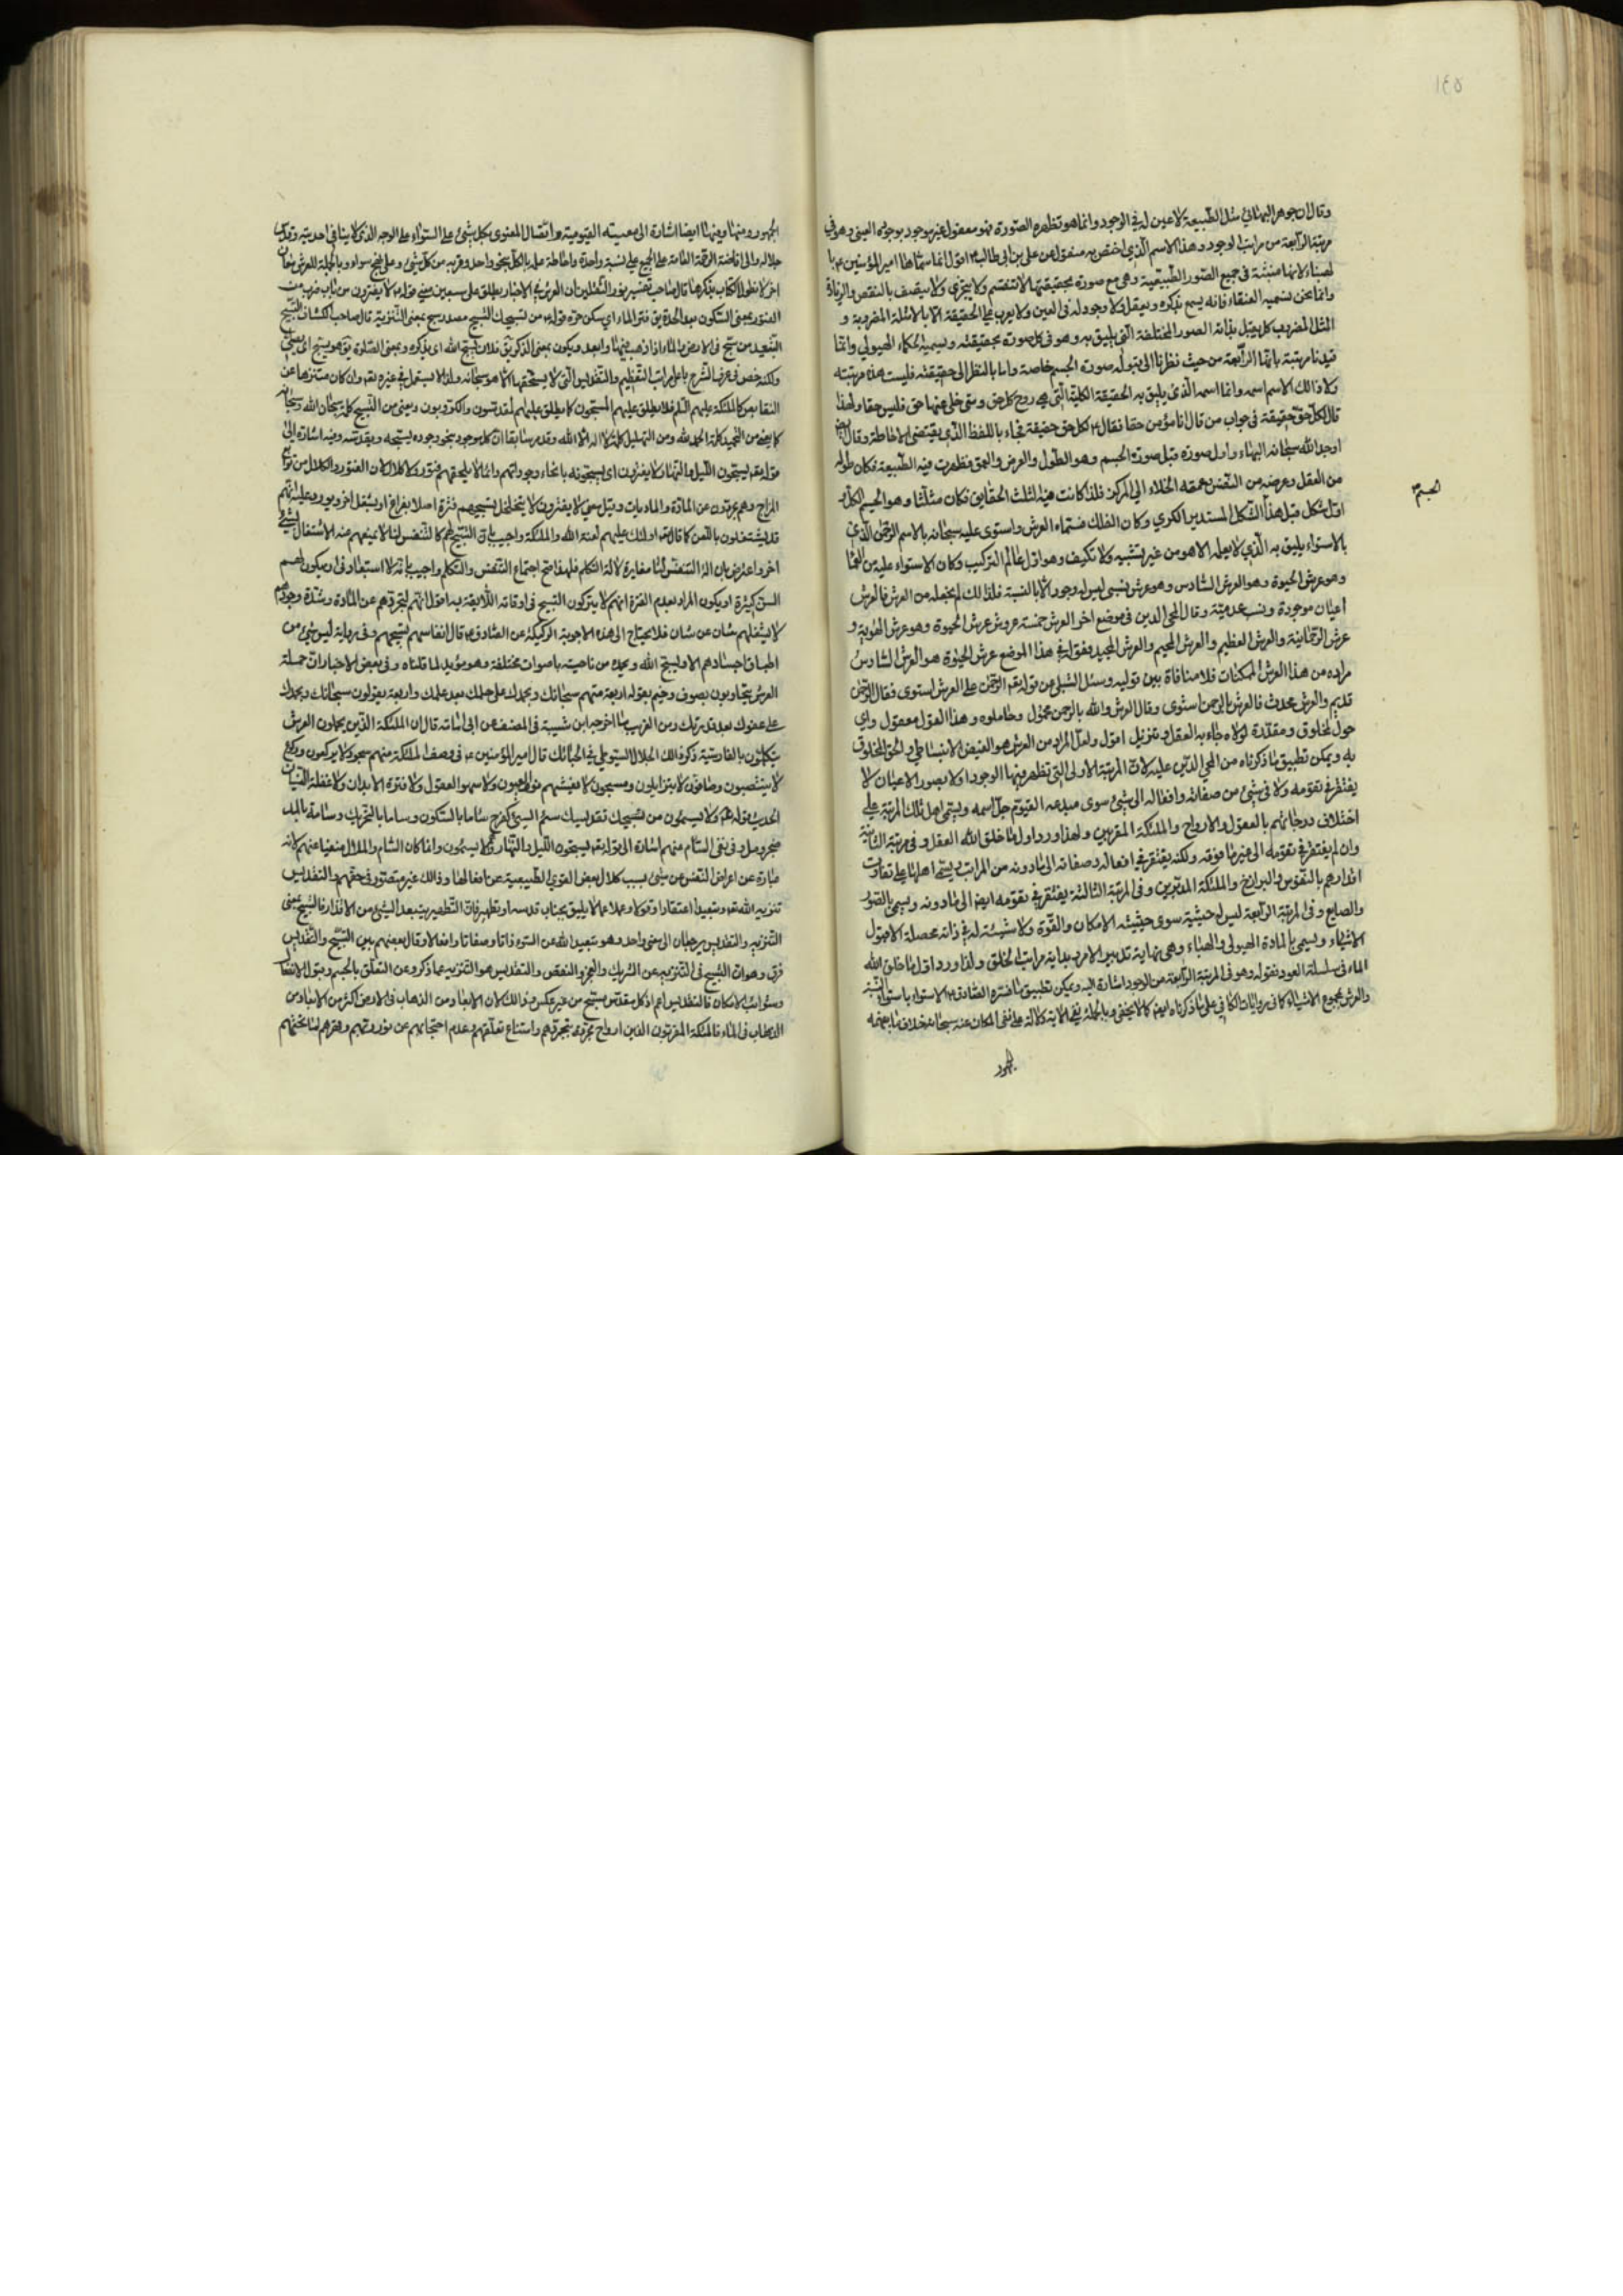 ١٤٥
وقال ان جوهر الهبائي مثل الطبيعة لا عين له في الوجود وانما هو تظهره الصورة فهو معقول غير موجود بوجوده العيني وهو في
مرتبة الرابعة من مراتب الوجود وهذا الاسم الذي اختص به منقول عن علي بن ابي طالب ع اقول انما سماها امير المؤمنين ع با
لهباء لانها منبثة في جميع الصور الطبيعية وهي مع صورة بحقيقتها لا تنقسم ولا يتجزى ولا يتصف بالنقص والزيادة
وانما نحن نسميه العنقاء فانه يسمع بذكره ويعقل ولا وجود له في العين ولا يعرف على الحقيقة الا بالامثلة المضروبة و
المثل المضروب كل يقبل بذاته الصور المختلفة التي يليق به وهو في كل صورة بحقيقته ويسميه الحكماء الهيولى وانما
قيدنا مرتبة بانها الرابعة من حيث نظرنا الى قبوله صورة الجسم خاصة واما بالنظر الى حقيقته فليست هذه مرتبته
ولا ذالك الاسم اسمه وانما اسمه الذي يليق به الحقيقة الكلية التي هي روح كل حق ومتى خلى عنها حق فليس حقا ولهذا
قال لكل حق حقيقة في جواب من قال انا مؤمن حقا فقال ع لكل حق حقيقة فجاء باللفظ الذي يقتضي الاحاطة وقال ايضا
اوجد الله سبحانه الهباء واول صورة قبل صورة الجسم وهو الطول والعرض والعمق فظهرت فيه الطبيعة فكان طوله
من العقل وعرضه من النفس وعمقه الخلاء الى المركز فلذا كانت فيه الثلث الحقايق فكان مثلثا وهو الجسم الكل و
الجسم
اول شكل قبل هذا الشكل المستدير الكري وكان الفلك فسماه العرش واستوى عليه سبحانه بالاسم الرحمن الذي
بالاستواء يليق به الذي لا يعلمه الا هو من غير تشبيه ولا تكييف وهو اول عالم التركيب وكان الاستواء عليه من العماء
وهو عرش الحيوة وهو العرش السادس وهو عرش نسبي ليس له وجود الا بالنسبة فلذالك لم نجعله من العرش فالعرش
اعيان موجودة ونسب عدمية وقال المحي الدين في موضع اخر العرش خمسة عروش عرش الحيوة وهو عرش الهوية و
عرش الرحمانية والعرش العظيم والعرش الكريم والعرش المجيد فقوله في هذا الموضع عرش الحيوة هو العرش السادس
مراده من هذا العرش الممكنات فلا منافاة بين قوليه وسئل الشبلي عن قوله تعم الرحمن على العرش استوى فقال الرحمن
قديم والعرش محدث فالعرش بالرحمن استوى وقال العرش والله بالرحمن محمول وحاملوه وهذا القول معقول واي
حول لمخلوق ومقدرة لولاه جاء به العقل وتنزيل اقول ولعل المراد من العرش هو الفيض الانبساطي والحق المخلوق
به ويمكن تطبيق ما ذكرناه من المحي الدين عليه لان المرتبة الاولى التي تظهر فيها الوجود اولا بصور الاعيان لا
يفتقر في تقومه ولا في شيء من صفاته وافعاله الى شيء سوى مبدعه القيوم جل اسمه ويسمى اهل تلك المرتبة على
اختلاف درجاتهم بالعقول والارواح والملئكة المقربين ولهذا ورد اول ما خلق الله العقل وفي مرتبة الثانية
وان لم يفتقر في تقومه الى غير ما فوقه ولكنه يفتقر في افعاله وصفاته الى ما دونه من المراتب ويسمى اهلها على تفاوت
اقدارهم بالنفوس والبرازخ والملئكة المدبرين وفي المرتبة الثالثة يفتقر في تقومه ايضا الى ما دونه ويسمى بالصور
والصنايع وفي المرتبة الرابعة ليس له حيثية سوى حيثيته الامكان والقوة ولا شيئية له في ذاته محصلة الا قبول
الاشياء ويسمى بالمادة الهيولى والهباء وهي نهاية تدبير الامر بداية مراتب الخلق ولذا ورد اول ما خلق الله
الماء في سلسلة العود فقوله وهو في المرتبة الرابعة من الوجود اشارة اليه ويمكن تطبيق ما فسره الصادق ع الاستواء باستواء النسبة
والعرش بمجموع الاشياء كما في روايات الكافي على ما ذكرناه ايضا كما لا يخفى وبالجملة ففي الاية دلالة على نفي المكان عنه سبحانه خلاف ما يفهمه
الجمهور
الجمهور ومنها وفيها ايضا اشارة الى معيته القيومية واتصال المعنوي بكل شيء على السواء على الوجه الذي لا ينافي احديته وقدس
جلاله والى افاضة الرحمة العامة على الجميع على نسبة واحدة واحاطة علمه بالكل بنحو واحد وقربه من كل شيء على نهج سواء وبالجملة للعرش معان
اخر لا نطول الكتاب بذكرها قال صاحب تفسير نور الثقلين ان العرش في الاخبار يطلق على سبعين معنى قوله ع لا يفترون من باب ضرب من
الفتور بمعنى السكون بعد الحدة يق فتر الماء اي سكن حره قوله ع من تسبيحك التسبيح مصدر سبح بمعنى التنزيه قال صاحب الكشاف التسبيح
التبعيد من سبح في الارض والماء اذا ذهب فيهما وابعد ويكون بمعنى الذكر يق فلان يسبح الله اي يذكره وبمعنى الصلوة يق هو يسبح اي يصلي
ولكنه خص في عرف الشرع باعلى مراتب التعظيم والتقديس التي لا يستحقها الا هو سبحانه ولذا لا يستعمل في غيره تعم وان كان متنزها عن
النقايص كالملئكة عليهم السلم فلا يطلق عليهم المسبحون كما يطلق عليهم لمقدسون والكروبيون ويعنى من التسبيح كلمة سبحان الله وسبحانه
كما يعنى من التحميد كلمة الحمد لله ومن التهليل كلمة لا اله الا الله وقد مر سابقا ان كل موجود بنحو وجوده يسبحه ويقدسه وفيه اشارة الى
قوله تعم يسبحون الليل والنهار لا يفترون اي يسبحونه بانحاء وجوداتهم وانما لا يلحقهم فتور ولا كلال لان الفتور والكلال من توابع
المزاج وهم مجردون عن المادة والماديات وقيل معنى لا يفترون لا يتخلل تسبيحهم فترة اصلا بفراغ او بشغل اخر ويورد عليه انهم
قد يشتغلون باللعن كما قال تعم اولئك عليهم لعنة الله والملئكة واجيب بان التسبيح لهم كالتنفس لنا لا يمنعهم عنه الاشتغال بشيء
اخر واعترض بان الة التنفس لنا مغايرة لالة التكلم فلهذا صح اجتماع التنفس والتكلم واجيب بانه لا استبعاد في ان يكون لهم
السن كثيرة او يكون المراد بعدم الفترة انهم لا يتركون التسبيح في اوقاته اللائقة به اقول انهم لتجردهم عن المادة وشدة وجودهم
لا يشغلهم شان عن شان فلا يحتاج الى هذه الاجوبة الركيكة عن الصادق ع قال انفاسهم تسبيحهم وفي رواية ليس شيء من
اطباق اجسادهم الا ويسبح الله ويحمده من ناحيته باصوات مختلفة وهو مؤيد لما قلناه وفي بعض الاخبار ان حملة
العرش يتجاوبون بصوت رخيم يقوله اربعة منهم سبحانك وبحمدك على حلمك بعد علمك واربعة يقولون سبحانك وبحمدك
على عفوك بعد قدرتك ومن الغريب ما اخرجه ابن شيبة في المصنف عن ابي امامة قال ان الملئكة الذين يحملون العرش
يتكلمون بالفارسية ذكر ذالك الجلال السيوطي في الحبائك قال امير المؤمنين ع في وصف الملئكة منهم سجود لا يركعون وركوع
لا ينتصبون وصافون لا يتزايلون ومسبحون لا يغشيهم نوم العيون ولا سهو العقول ولا فترة الابدان ولا غفلة النسيان
الحديث قوله ع ولا يسئمون من تسبيحك تقديسك سئم الشيء كفرح ساما بالسكون وساما بالتحريك وسامة بالمد
ضجر ومل وفي نفي السام منهم اشارة الى قوله تعم يسبحون الليل والنهار وهم لا يسئمون وانما كان السام والملال منفيا عنهم لانه
عبارة عن اعراض النفس عن شيء بسبب كلال بعض القوى الطبيعية عن افعالها وذالك غير متصور في حقهم والتقديس
تنزيه الله تعم وتبعيده اعتقادا وقولا وعملا عما لا يليق بجناب قدسه او تطهير فان التطهير تبعد الشيء من الاقذار فالتسبيح بمعنى
التنزيه والتقديس يرجعان الى معنى واحد وهو تبعيد الله عن السوء ذاتا وصفاتا وافعالا وقال بعضهم بين التسبيح والتقديس
فرق وهو ان التسبيح هي التنزيه عن الشريك والعجز والنقص والتقديس هو التنزيه عما ذكر وعن التعلق بالجسم وقبول الانفعال
وشوائب الامكان فالتقديس اعم اذ كل مقدس مسبح من غير عكس وذالك لان الابعاد من الذهاب في الارض اكثر من الابعاد من
الذهاب في الماء فالملئكة المقربون الذين ارواح مجردة بتجردهم وامتناع تعلقهم وعدم احتجابهم عن نور ربهم وقهرهم لما تحتهم